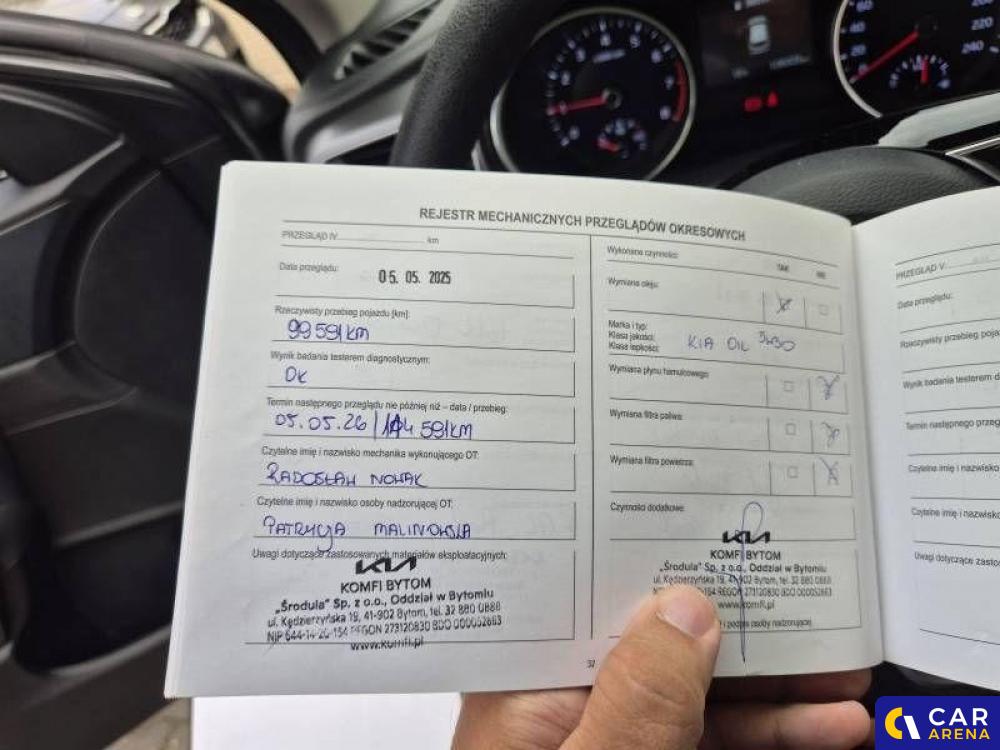 REJESTR MECHANICZNYCH PRZEGLĄDÓW OKRESOWYCH
PRZEGLĄD IV km
Data przeglądu:
05. 05. 2025
Rzeczywisty przebieg pojazdu [km]:
99 591 km
Wynik badania testerem diagnostycznym:
OK
Termin następnego przeglądu nie później niż – data / przebieg:
05.05.26 / 114 591 km
Czytelne imię i nazwisko mechanika wykonującego OT:
RADOSŁAW NOWAK
Czytelne imię i nazwisko osoby nadzorującej OT:
PATRYCJA MALINOWSKA
Uwagi dotyczące zastosowanych materiałów eksploatacyjnych:
KIA
KOMFI BYTOM
„Środula" Sp. z o.o., Oddział w Bytomiu
ul. Kędzierzyńska 19, 41-902 Bytom, tel. 32 880 0888
www.komfi.pl
Wykonane czynności:
TAK NIE
Wymiana oleju:
Marka i typ:
Klasa jakości:
Klasa lepkości:
KIA OIL 5W30
Wymiana płynu hamulcowego:
Wymiana filtra paliwa:
Wymiana filtra powietrza:
Czynności dodatkowe:
KIA
KOMFI BYTOM
„Środula" Sp. z o.o., Oddział w Bytomiu
ul. Kędzierzyńska 19, 41-902 Bytom, tel. 32 880 0888
www.komfi.pl
i podpis osoby nadzorującej
32
PRZEGLĄD V
Data przeglądu:
Rzeczywisty przebieg
Wynik badania testerem
Termin następnego
Czytelne imię i nazwisko
Czytelne imię i nazwisko
Uwagi dotyczące
4 5 6 7 8
60
220
240
CAR
ARENA